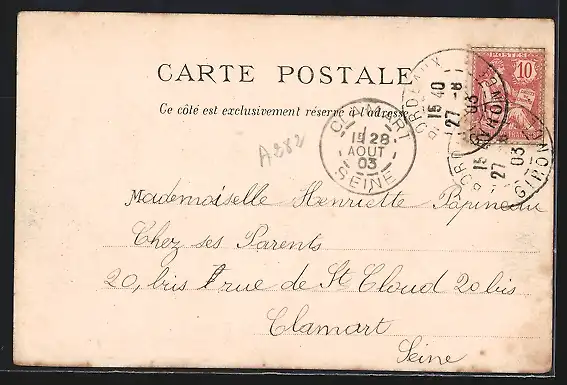 CARTE POSTALE
Ce côté est exclusivement réservé à l'adresse
POSTES
10
BORDEAUX
15 40
27 -8
03
GIRONDE
BORD
15
27
03
GIRONDE
CLAMART
15 28
AOUT
03
SEINE
A282
Mademoiselle Henriette Papineau
Chez ses Parents
20, bis rue de St Cloud 20 bis
Clamart
Seine